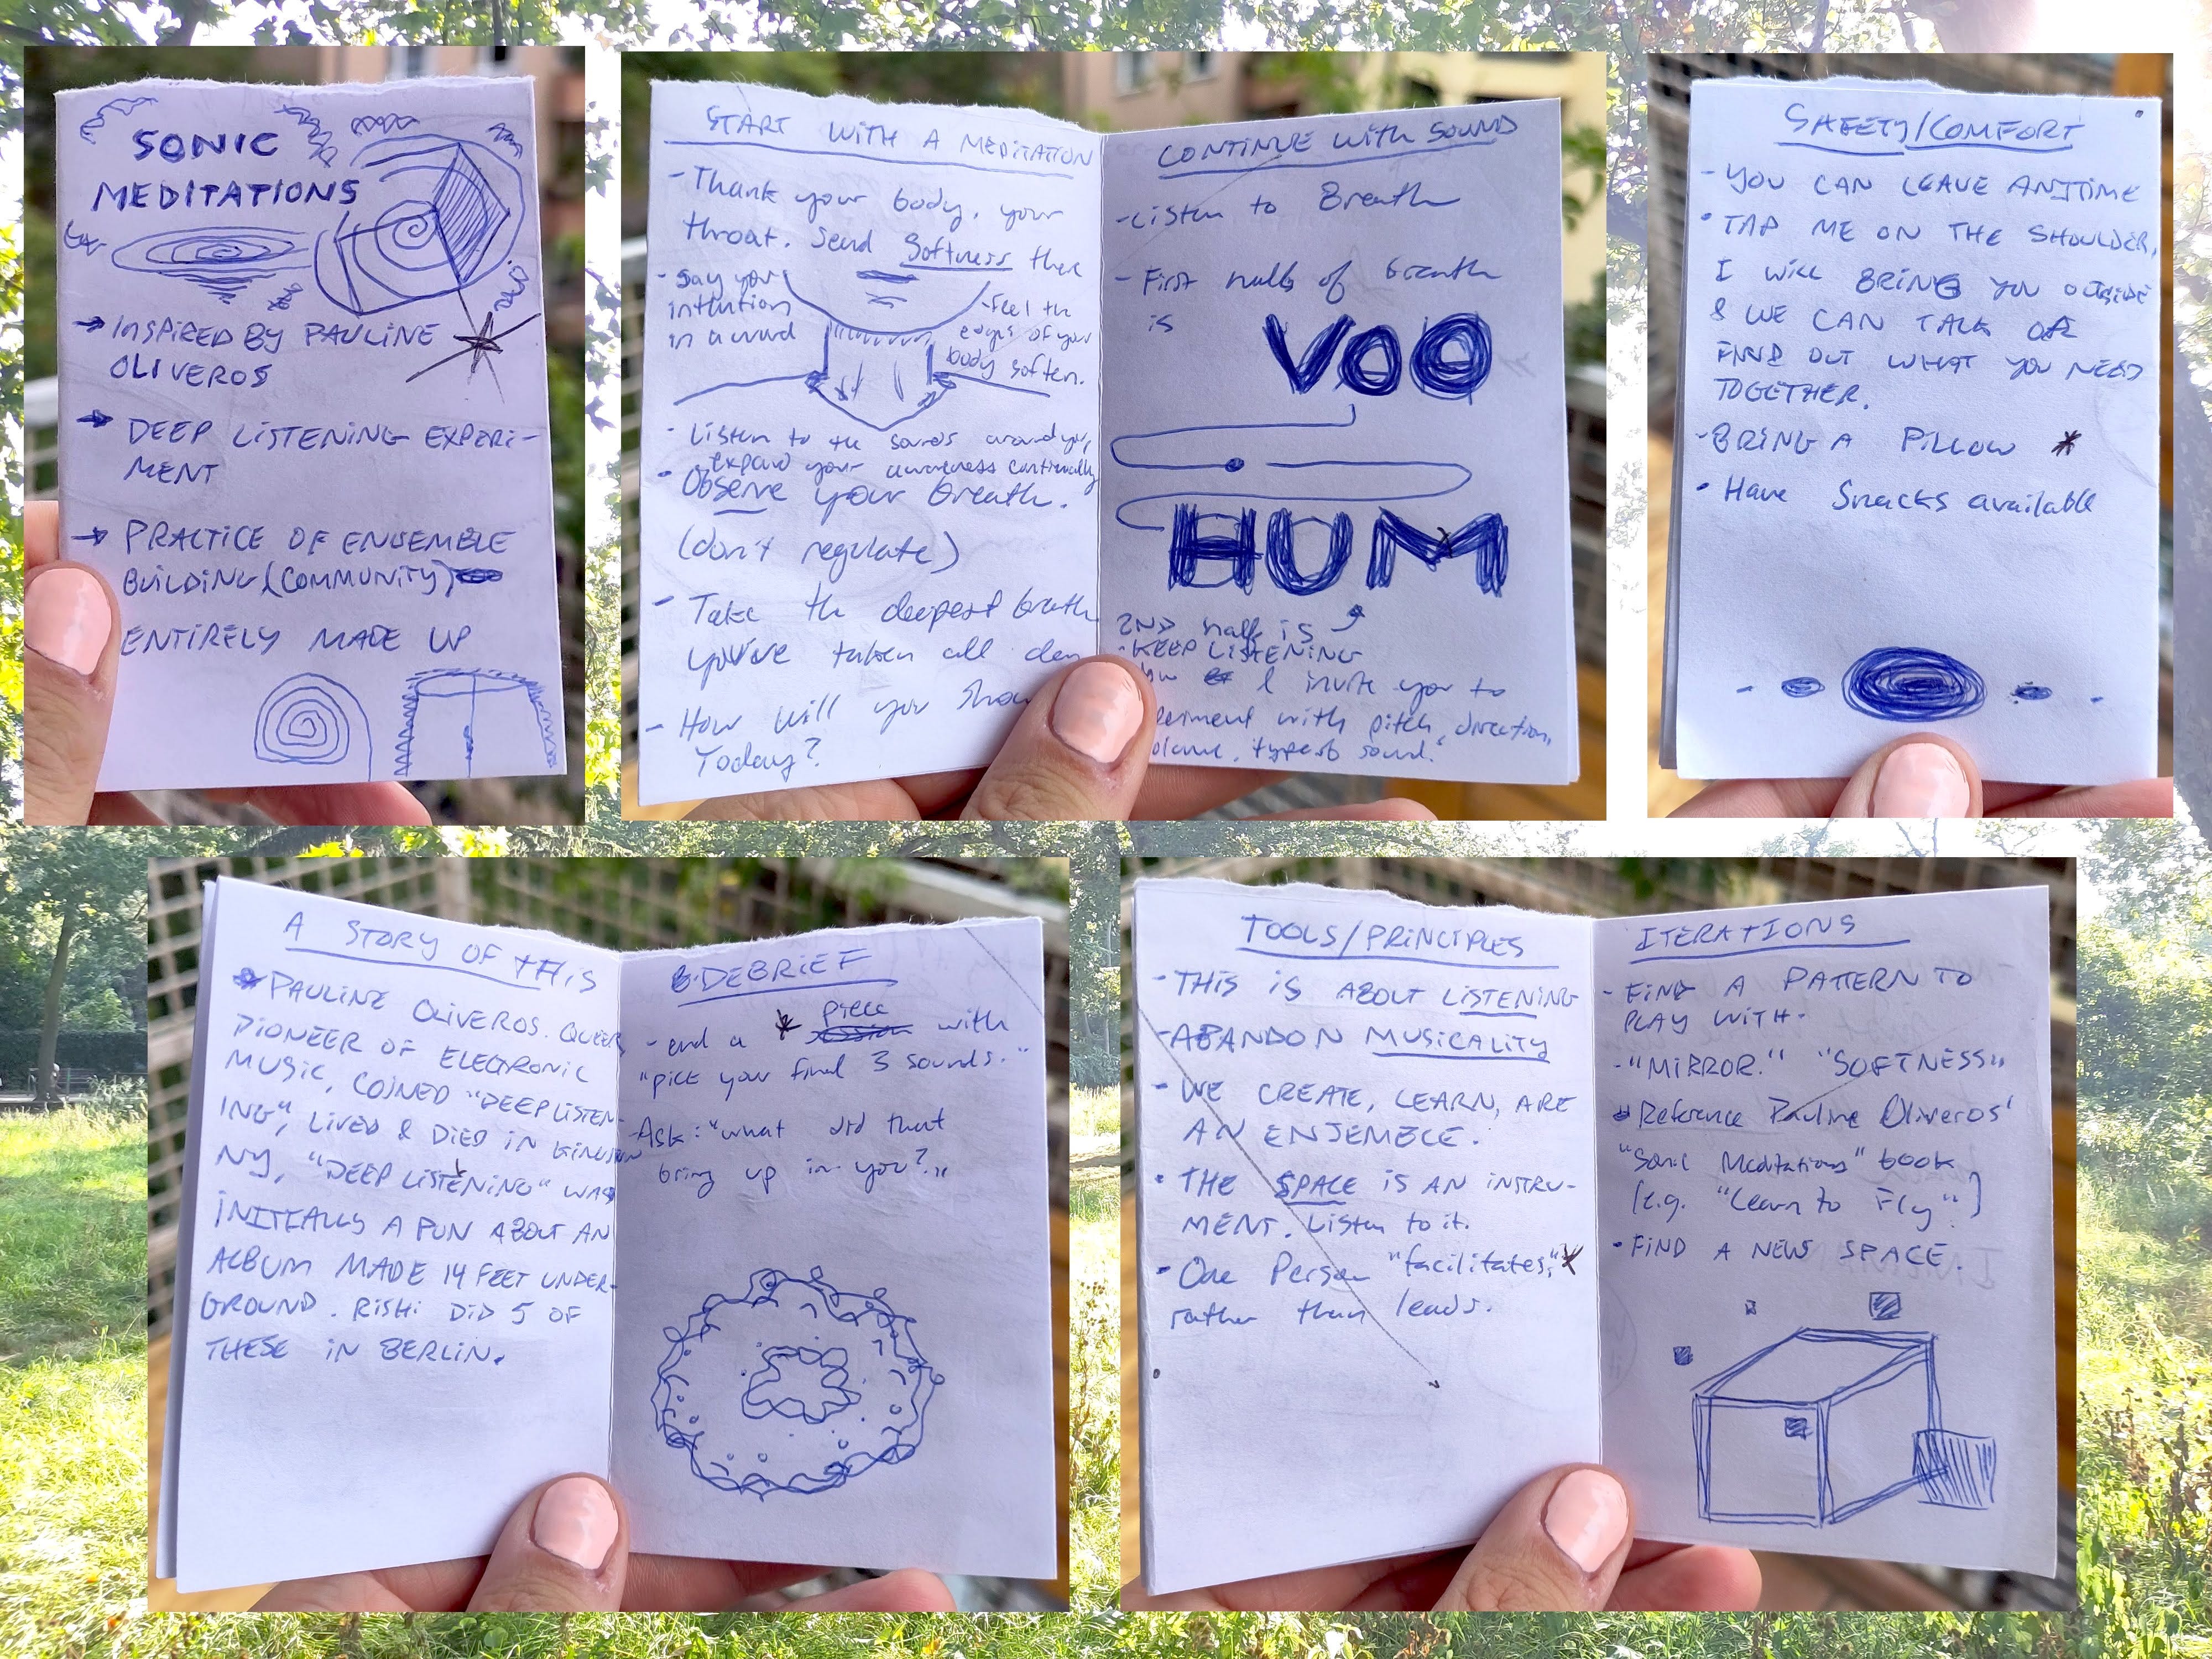 SONIC
MEDITATIONS
→ INSPIRED BY PAULINE
OLIVEROS
→ DEEP LISTENING EXPERI-
MENT
→ PRACTICE OF ENSEMBLE
BUILDING (COMMUNITY)
ENTIRELY MADE UP
START WITH A MEDITATION
- Thank your body, your
throat. Send Softness there
- Say your
intention
in a word
- Feel the
edges of your
body soften.
- Listen to the sounds around you,
expand your awareness continually
- Observe your breath.
(don't regulate)
- Take the deepest breath
you've taken all
- How will you
Today?
CONTINUE WITH SOUND
- Listen to Breath
- First half of breath
is
VOO
HUM
2ND half is
- KEEP LISTENING
I invite you to
with pitch, direction,
type of sound.
SAFETY/COMFORT
- YOU CAN LEAVE ANYTIME
• TAP ME ON THE SHOULDER,
I WILL BRING YOU OUTSIDE
& WE CAN TALK OR
FIND OUT WHAT YOU NEED
TOGETHER.
- BRING A PILLOW *
• Have Snacks available
A STORY OF THIS
PAULINE OLIVEROS. QUEER
PIONEER OF ELECTRONIC
MUSIC, COINED "DEEP LISTEN-
ING", LIVED & DIED IN KINGSTON
NY, "DEEP LISTENING" WAS
INITIALLY A PUN ABOUT AN
ALBUM MADE 14 FEET UNDER-
GROUND. RISHI DID 5 OF
THESE IN BERLIN.
DEBRIEF
- end a * piece with
"pick your final 3 sounds."
- Ask: "what did that
bring up in you?"
TOOLS/PRINCIPLES
- THIS IS ABOUT LISTENING
- ABANDON MUSICALITY
- WE CREATE, LEARN, ARE
AN ENSEMBLE.
• THE SPACE IS AN INSTRU-
MENT. Listen to it.
• One Person "facilitates," *
rather than leads.
ITERATIONS
- FIND A PATTERN TO
PLAY WITH.
- "MIRROR." "SOFTNESS"
Reference Pauline Oliveros'
"Sonic Meditations" book
(e.g. "Learn to Fly".)
• FIND A NEW SPACE.